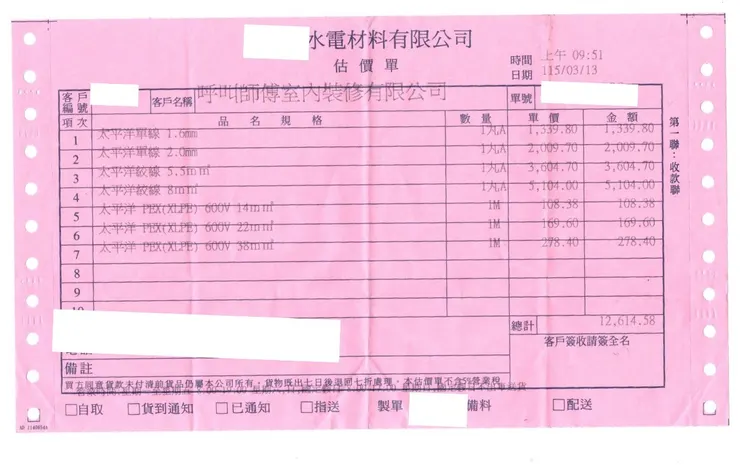 水電材料有限公司
估價單
時間 上午 09:51
日期 115/03/13
客戶編號
客戶名稱 呼叫師傅室內裝修有限公司
單號
項次 品名規格 數量 單價 金額
1 太平洋單線 1.6mm 1丸A 1,339.80 1,339.80
2 太平洋單線 2.0mm 1丸A 2,009.70 2,009.70
3 太平洋絞線 5.5mm² 1丸A 3,604.70 3,604.70
4 太平洋絞線 8mm² 1丸A 5,104.00 5,104.00
5 太平洋 PEX(XLPE) 600V 14mm² 1M 108.38 108.38
6 太平洋 PEX(XLPE) 600V 22mm² 1M 169.60 169.60
7 太平洋 PEX(XLPE) 600V 38mm² 1M 278.40 278.40
8
9
總計 12,614.58
客戶簽收請簽全名
備註
買方同意貨款未付清前貨品仍屬本公司所有，貨物既出七日後退回七折處理，本估價單不含5%營業稅
□自取 □貨到通知 □已通知 □指送 製單 備料 □配送
第一聯：收款聯